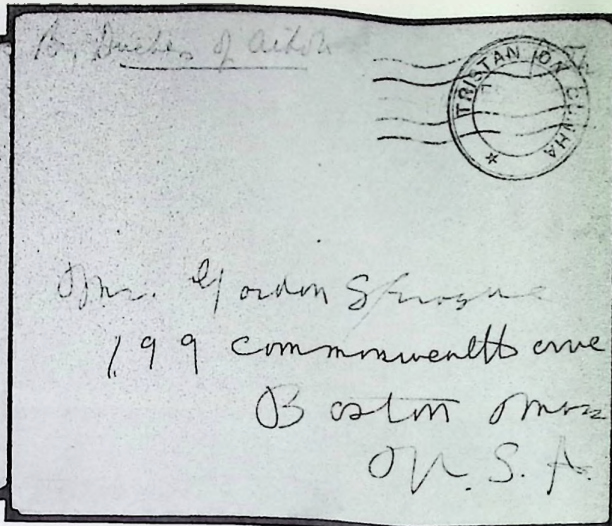 By Duchess of Atholl
TRISTAN DA CUNHA
Gordon Sprague
199 Commonwealth ave
Boston Mass
U.S.A.